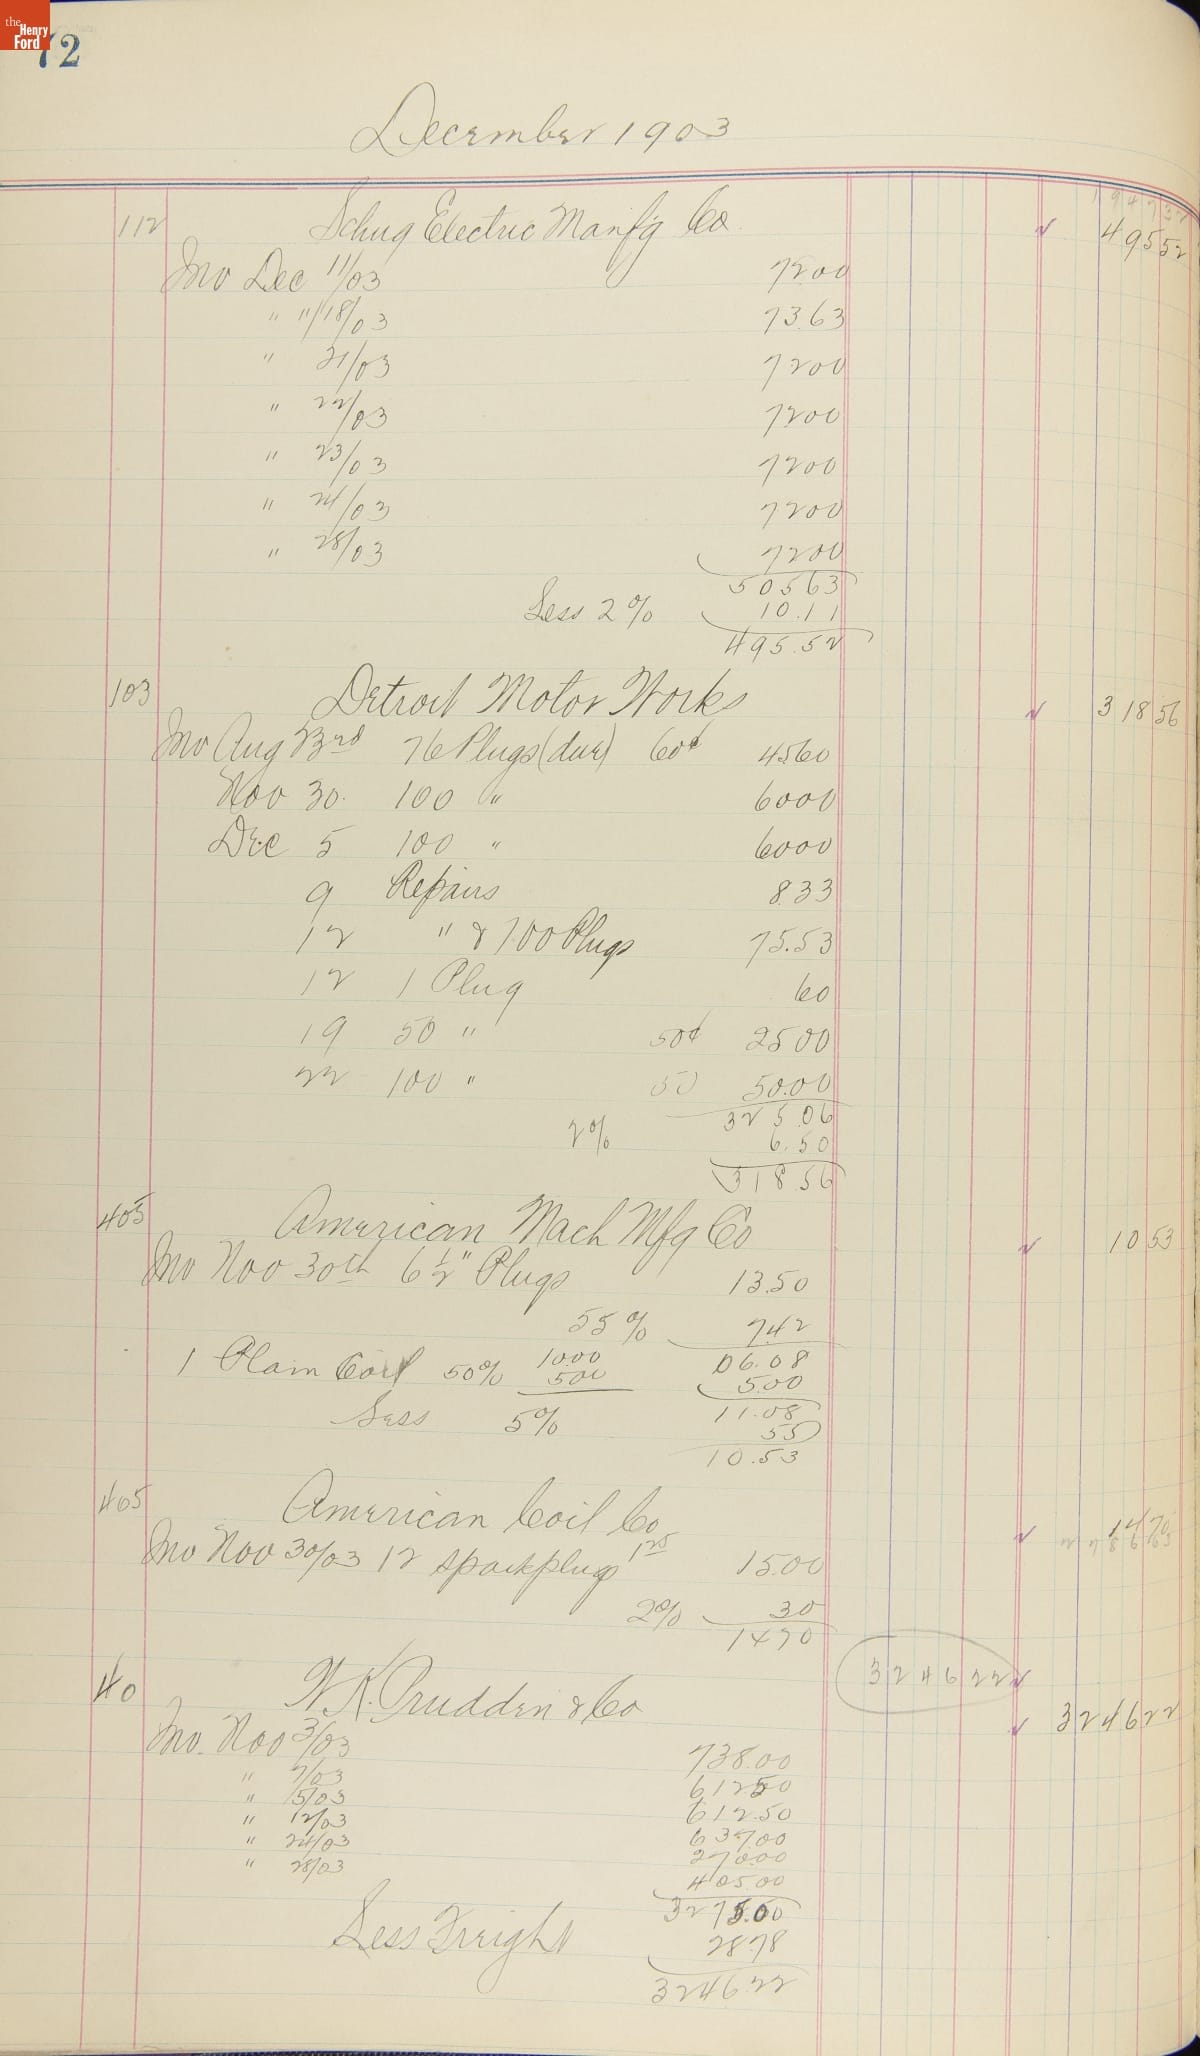 the Henry Ford
72
December 1903
112 Schug Electric Manf'g Co. 495 52
Inv Dec 11/03 72 00
" "/18/03 73.63
" 21/03 72 00
" 22/03 72 00
" 23/03 72 00
" 24/03 72 00
" 28/03 72 00
505 63
Less 2% 10.11
495.52
103 Detroit Motor Works 318 56
Inv Aug 23rd 76 Plugs (dur) 60¢ 45.60
Nov 30. 100 " 60 00
Dec 5 100 " 60 00
9 Repairs 8.33
12 " & 100 Plugs 75.53
12 1 Plug 60
19 50 " 50¢ 25 00
22 100 " 50 50.00
325.06
2% 6.50
318 56
405 American Mach Mfg Co 10 53
Inv Nov 30th 6 1/2" Plugs 13.50
55% 7.42
06.08
1 Plain Coil 50% 10.00 5.00 5.00
11.08
Less 5% 55
10.53
405 American Coil Co 14 70
Inv Nov 30/03 12 sparkplugs 1 25 15.00
2% 30
14 70
3246 22
40 W.K. Prudden & Co 3246 22
Inv. Nov 3/03 738.00
" 7/03 612 50
" 5/03 612.50
" 12/03 637.00
" 24/03 270.00
" 28/03 405 00
3275.00
Less Freight 28.78
3246.22